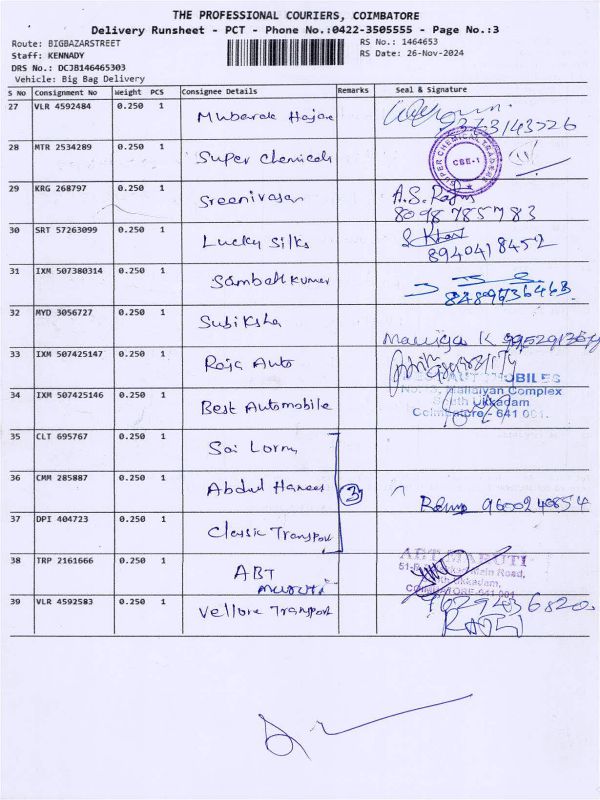 THE PROFESSIONAL COURIERS, COIMBATORE
Delivery Runsheet - PCT - Phone No.:0422-3505555 - Page No.:3
Route: BIGBAZARSTREET
RS No.: 1464653
Staff: KENNADY
RS Date: 26-Nov-2024
DRS No.: DCJB146465303
Vehicle: Big Bag Delivery
S No Consignment No Weight PCS Consignee Details Remarks Seal & Signature
27 VLR 4592484 0.250 1 Mubarak
28 MTR 2534289 0.250 1 Super Chemicals
SUPER CHEMICAL TRADERS CBE-1
29 KRG 268797 0.250 1 Sreenivasan A.S.
8098785783
30 SRT 57263099 0.250 1 Lucky Silks
8940418452
31 IXM 507380314 0.250 1 Sambath kumar
32 MYD 3056727 0.250 1 Subiksha K
33 IXM 507425147 0.250 1 Raja Auto
34 IXM 507425146 0.250 1 Best Automobile
Complex
South Ukkadam
Coimbatore - 641 001.
35 CLT 695767 0.250 1 Sai Lorry
36 CMM 285887 0.250 1 Abdul Hanees 3
37 DPI 404723 0.250 1 Classic Transport
38 TRP 2161666 0.250 1 ABT Maruti
ABT MARUTI
Main Road,
Ukkadam,
COIMBATORE-641 001
39 VLR 4592583 0.250 1 Vellore Transport